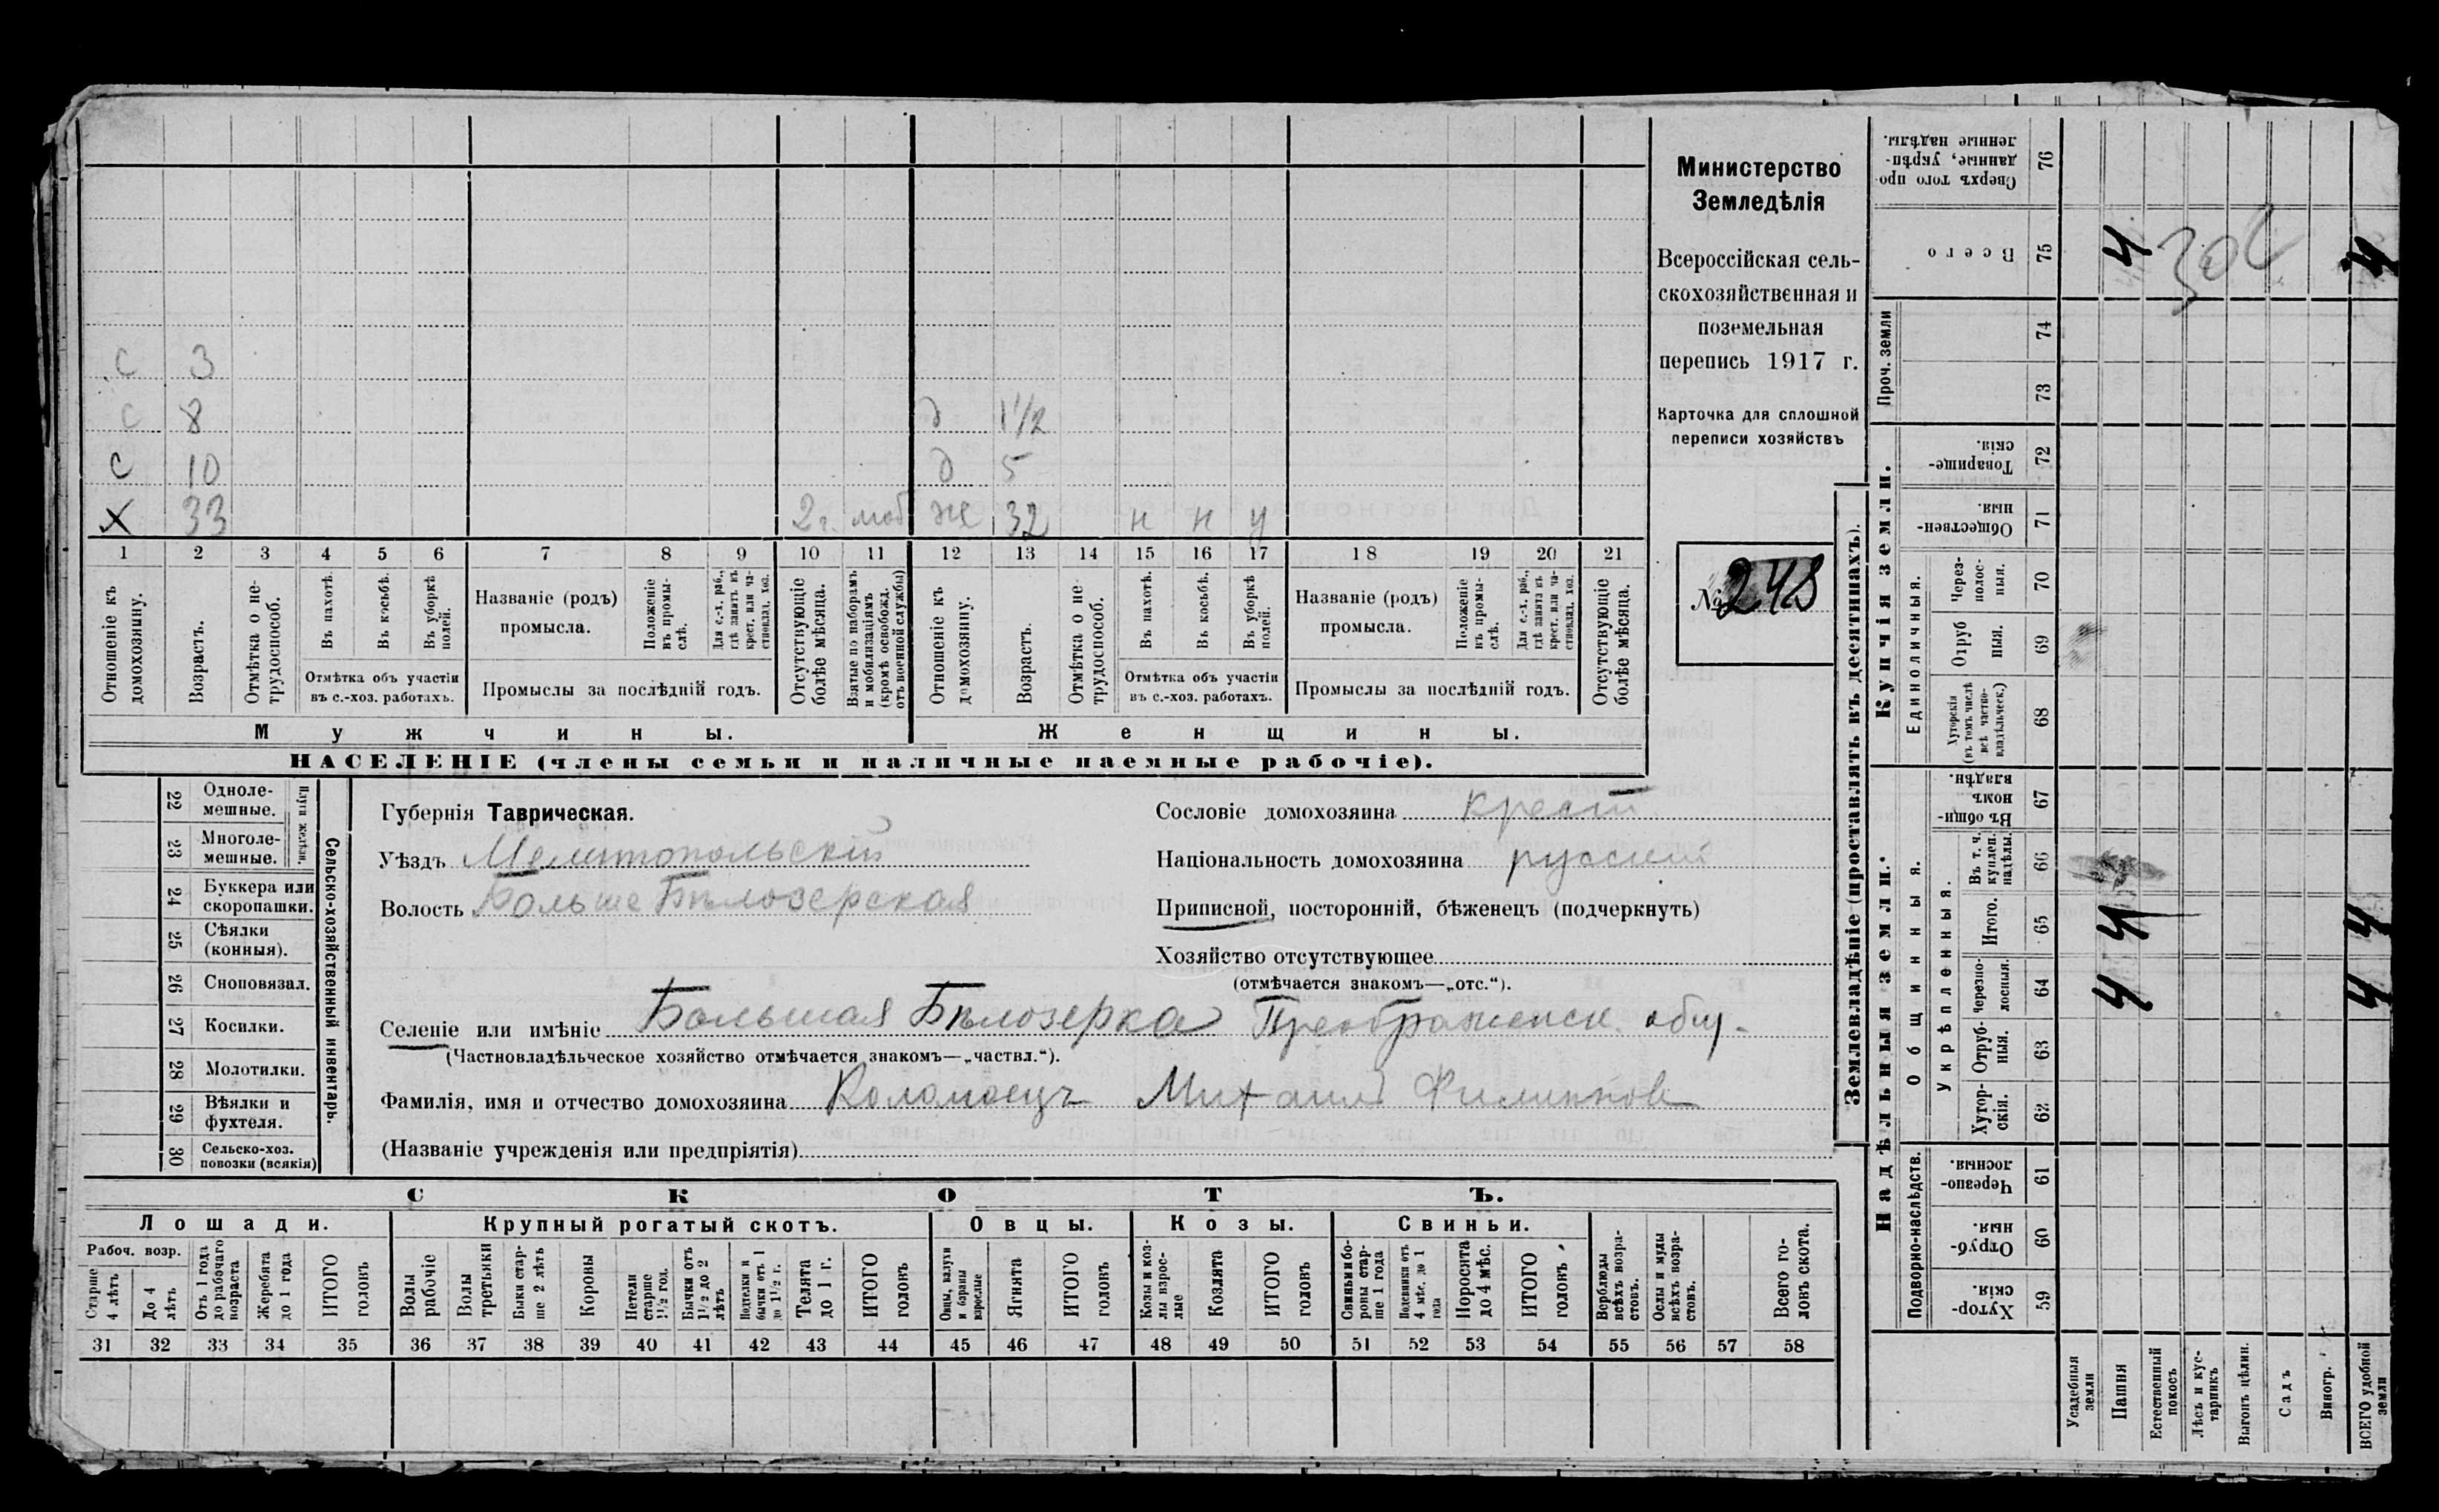 Министерство
Земледѣлія
Всероссійская сель-
скохозяйственная и
поземельная
перепись 1917 г.
Карточка для сплошной
переписи хозяйствъ
№ 248
с 3
с 8 д 1 1/2
с 10 д 5
х 33 2 г. моб же 32 н н у
1 2 3 4 5 6 7 8 9 10 11 12 13 14 15 16 17 18 19 20 21
Отношеніе къ домохозяину.
Возрастъ.
Отмѣтка о не-трудоспособ.
Въ пахотѣ.
Въ косьбѣ.
Въ уборкѣ полей.
Отмѣтка объ участіи
въ с.-хоз. работахъ.
Названіе (родъ)
промысла.
Положеніе въ промы-слѣ.
Для с.-х. раб., гдѣ занятъ въ крест. или ча-стновлад. хоз.
Промыслы за послѣдній годъ.
Отсутствующіе болѣе мѣсяца.
Взятые по наборамъ и мобилизаціямъ (кромѣ освобожд. отъ военной службы)
Отношеніе къ домохозяину.
Возрастъ.
Отмѣтка о не-трудоспособ.
Въ пахотѣ.
Въ косьбѣ.
Въ уборкѣ полей.
Отмѣтка объ участіи
въ с.-хоз. работахъ.
Названіе (родъ)
промысла.
Положеніе въ промы-слѣ.
Для с.-х. раб., гдѣ занята въ крест. или ча-стновлад. хоз.
Промыслы за послѣдній годъ.
Отсутствующіе болѣе мѣсяца.
Мужчины. Женщины.
НАСЕЛЕНІЕ (члены семьи и наличные наемные рабочіе).
22 Одноле-мешные.
23 Многоле-мешные.
Плуги желѣзн.
24 Буккера или скоропашки.
25 Сѣялки (конныя).
26 Сноповязал.
27 Косилки.
28 Молотилки.
29 Вѣялки и фухтеля.
30 Сельско-хоз. повозки (всякія)
Сельско-хозяйственный инвентарь.
Губернія Таврическая.
Уѣздъ Мелитопольскій
Волость Больше Бѣлозерская
Сословіе домохозяина крест
Національность домохозяина русскій
Приписной, посторонній, бѣженецъ (подчеркнуть)
Хозяйство отсутствующее
(отмѣчается знакомъ—„отс.“).
Селеніе или имѣніе Большая Бѣлозерка Преображенск. общ.
(Частновладѣльческое хозяйство отмѣчается знакомъ—„частвл.“).
Фамилія, имя и отчество домохозяина Коломоецъ Михаилъ Филиппов
(Названіе учрежденія или предпріятія)
СКОТЪ.
Лошади. Крупный рогатый скотъ. Овцы. Козы. Свиньи.
Рабоч. возр.
Старше 4 лѣтъ
До 4 лѣтъ
Отъ 1 года до рабочаго возраста
Жеребята до 1 года
ИТОГО головъ
Волы рабочіе
Волы третьяки
Быки стар-ше 2 лѣтъ
Коровы
Нетели старше 1 1/2 год.
Бычки отъ 1 1/2 до 2 лѣтъ
Подтелки и бычки отъ 1 до 1 1/2 г.
Телята до 1 г.
ИТОГО головъ
Овцы, валухи и бараны взрослые
Ягнята
ИТОГО головъ
Козы и коз-лы взрос-лые
Козлята
ИТОГО головъ
Свиньи и бо-ровы стар-ше 1 года
Подсвинки отъ 4 мѣс. до 1 года
Поросята до 4 мѣс.
ИТОГО головъ
Верблюды всѣхъ возра-стовъ.
Ослы и мулы всѣхъ возра-стовъ.
Всего го-ловъ скота.
31 32 33 34 35 36 37 38 39 40 41 42 43 44 45 46 47 48 49 50 51 52 53 54 55 56 57 58
Землевладѣніе (проставлять въ десятинахъ).
Сверхъ того про-данные, укрѣп-ленные надѣлы. 76
Всего 75 4 4
Проч. земли 74
73
Купчія земли.
Товарище-скія. 72
Обществен-ныя. 71
Единоличныя.
Через-полос-ныя. 70
Отруб ныя. 69
Хуторскія (въ томъ числѣ всѣ частно-владѣльческ.) 68
Надѣльныя земли.
Общинныя.
Въ общин-номъ владѣн. 67
Укрѣпленныя.
Въ т. ч. куплен. надѣлы. 66
Итого. 65 4 4
Черезпо-лосныя. 64 4 4
Отруб-ныя. 63
Хутор-скія. 62
Подворно-наслѣдств.
Черезпо-лосныя. 61
Отруб-ныя. 60
Хутор-скія. 59
Усадебныя земли
Пашня
Естественный покосъ
Лѣсъ и кус-тарникъ
Выгонъ цѣлин.
Садъ
Виногр.
ВСЕГО удобной земли